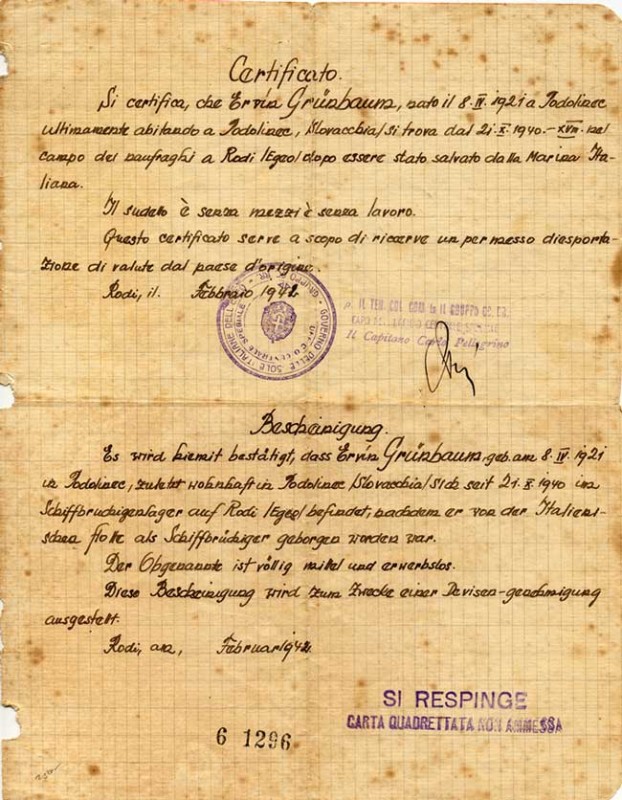 Certificato.
Si certifica, che Ervin Grünbaum, nato il 8. IV. 1921 a Podolinec
ultimamente abitando a Podolinec, /Slovacchia/ si trova dal 21. X. 1940.-XVIII. nel
campo dei naufraghi a Rodi /Egeo/ dopo essere stato salvato dalla Marina Ita-
liana.
Il sudetto è senza mezzi è senza lavoro.
Questo certificato serve a scopo di ricerve un permesso di esporta-
zione di valute dal paese d'origine.
Rodi, il. Febbraio 1942.
GOVERNO DELLE ISOLE ITALIANE DELL'EGEO
UFFICIO CENTRALE SPECIALE
p. IL TEN. COL. GRUPPO CC. RR.
CAPO CENTRALE SPECIALE
Il Capitano Carlo Pellegrino
Bescheinigung.
Es wird hiemit bestätigt, dass Ervin Grünbaum, geb. am 8. IV. 1921
in Podolinec, zuletzt wohnhaft in Podolinec /Slovacchia/ sich seit 21. X. 1940 im
Schiffbrüchigenlager auf Rodi /Egeo/ befindet, nachdem er von der Italieni-
schen flotte als Schiffbrüchiger geborgen worden war.
Der Obgenannte ist völlig mittel und erwerbslos.
Diese Bescheinigung wird zum Zwecke einer Devisen-genehmigung
ausgestelt.
Rodi, am, Februar 1942.
SI RESPINGE
CARTA QUADRETTATA NON AMMESSA
6 1296